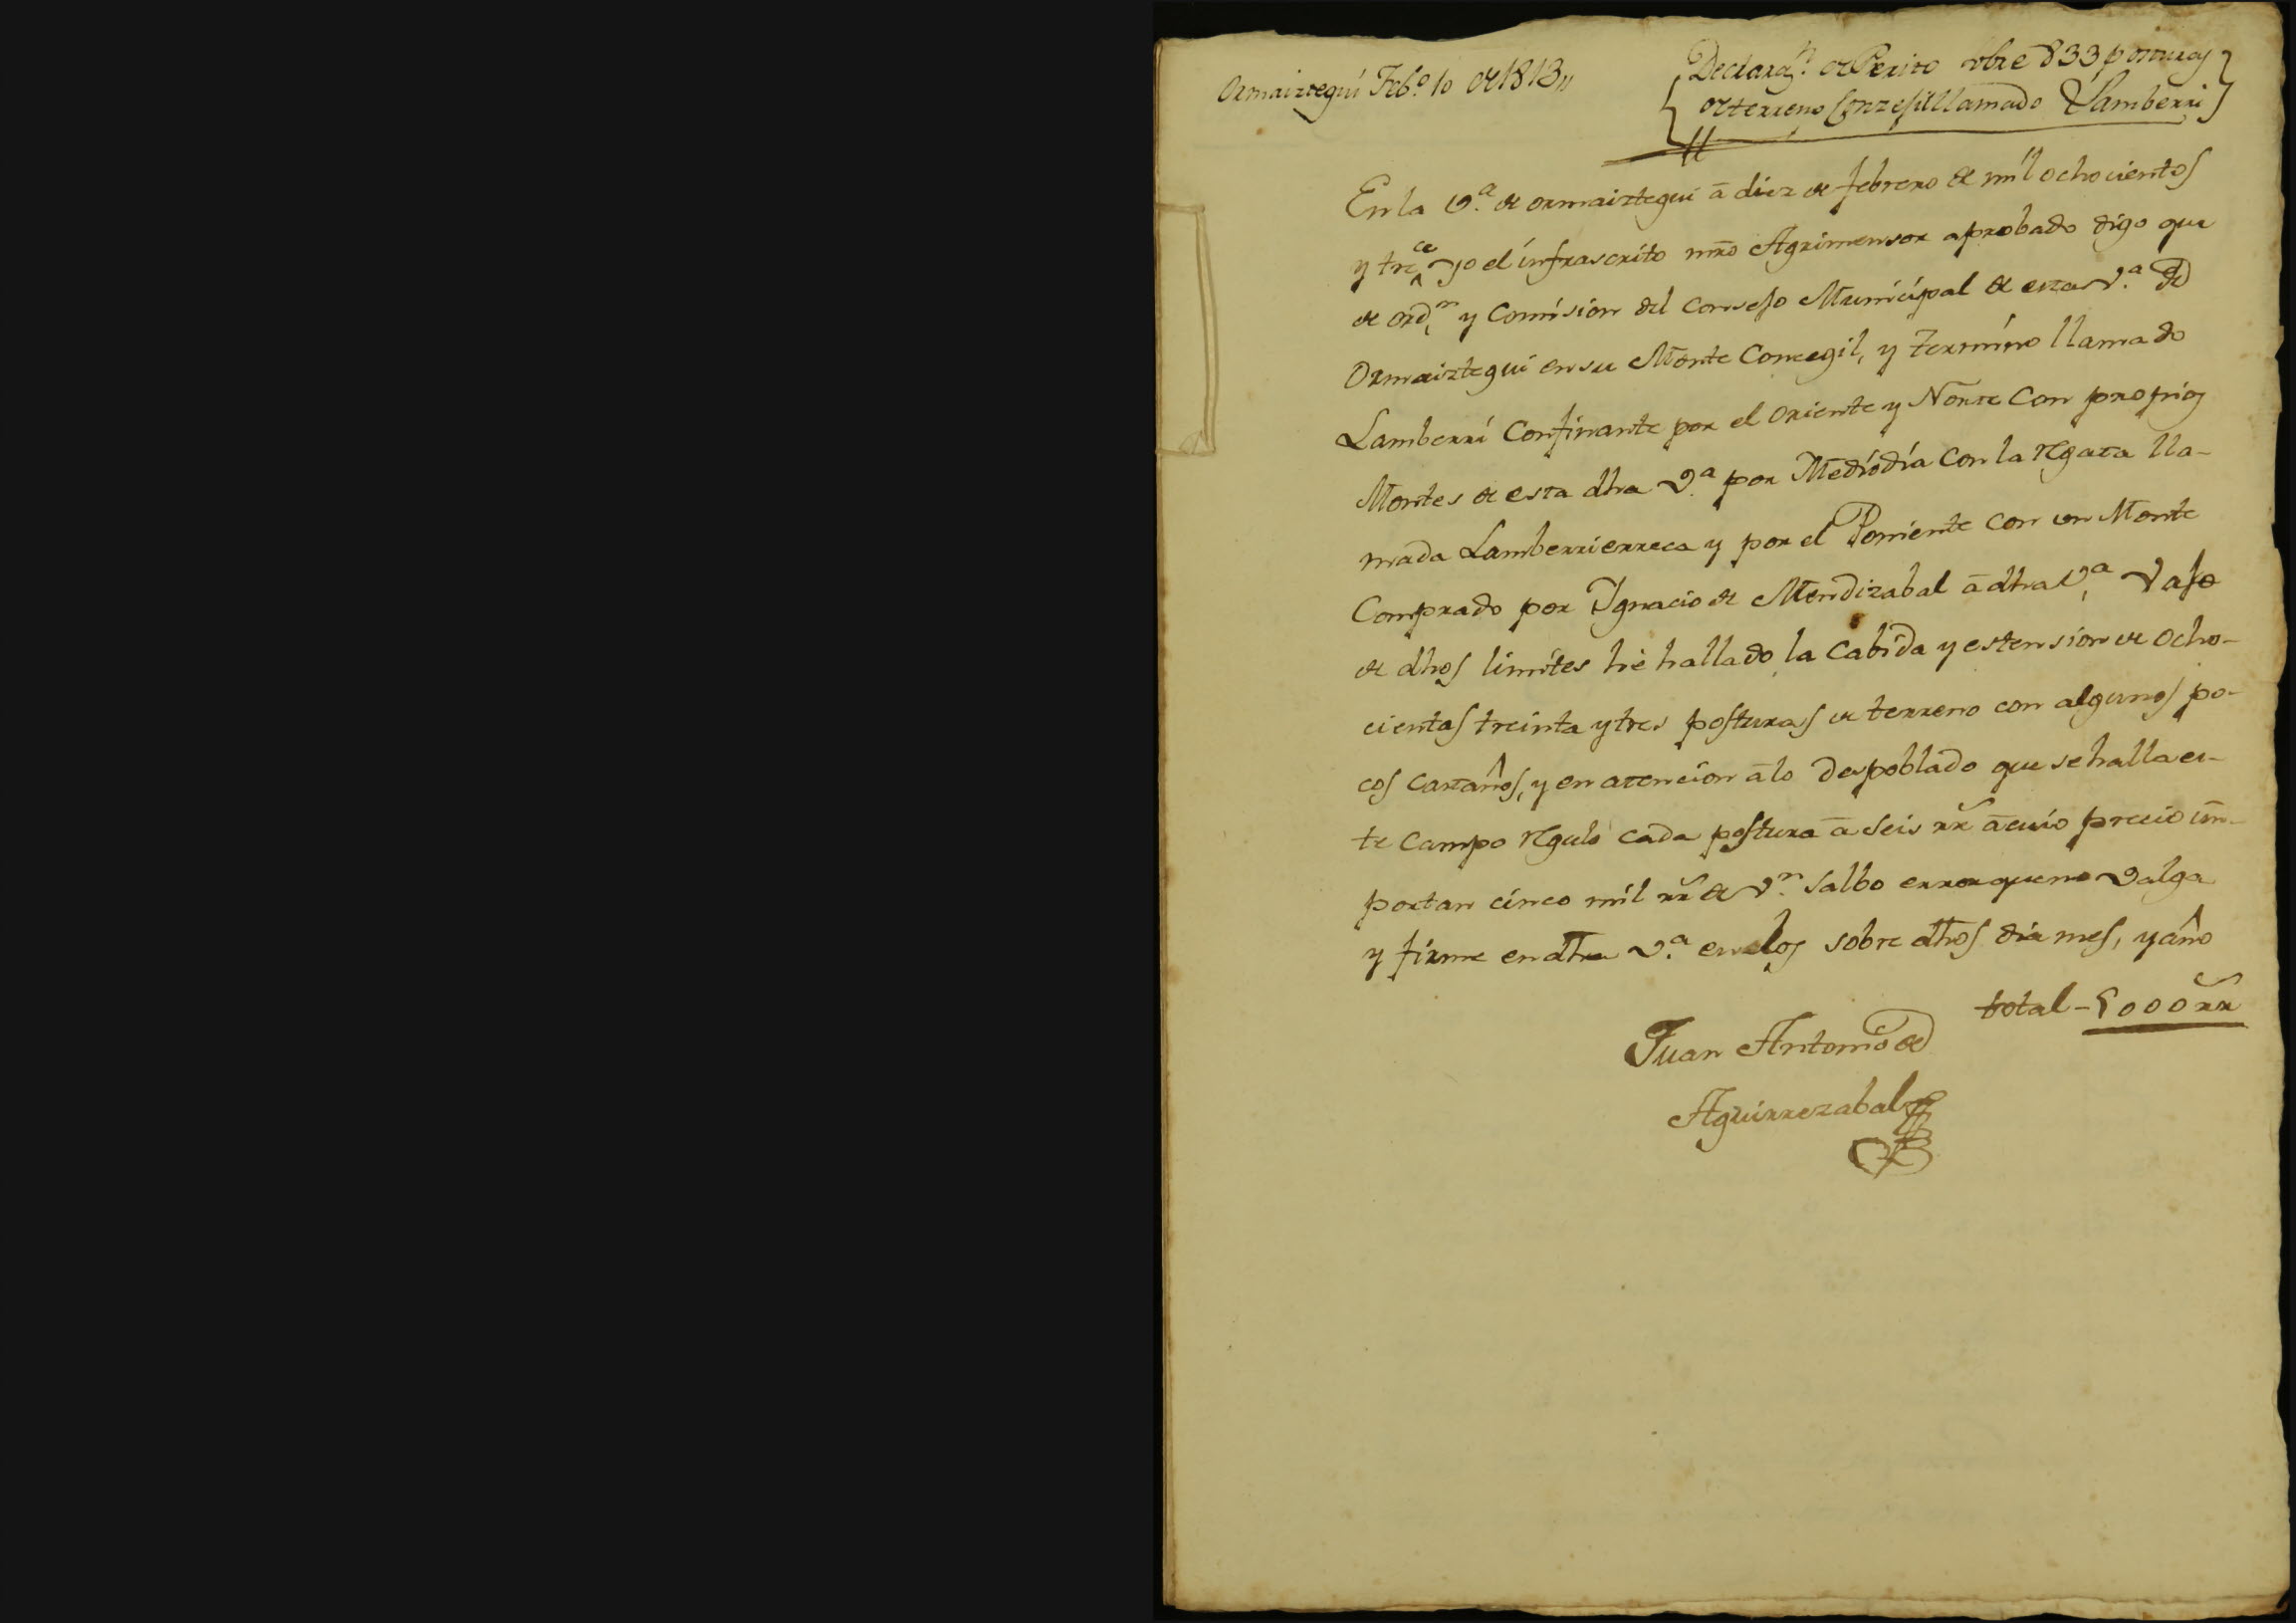 Ormaiztegui Feb.º 10 de 1813,,
Declarac.n de Perito sobre 833 posturas
de terreno Conzejil llamado Lamberri
En la V.a de ormaiztegui â diez de febrero de mil ochocientos
y trece yo el infrascrito mro Agrimensor aprobado digo que
de ord.n y Comision del Consejo Municipal de esta V.a de
Ormaiztegui en su Monte Concegil, y termino llamado
Lamberri Confinante por el oriente y Norte Con proprios
Montes de esta dha V.a por Mediodia Con la regata lla-
mada Lamberrierreca y por el Poniente con un Monte
Comprado por Ygnacio de Mendizabal â dha V.a Vajo
de dhos limites hé hallado la Cabida y estension de ocho-
cientas treinta y tres posturas de terreno con algunos po-
cos castaños, y en atencion â lo despoblado que se halla es-
te Campo reguló cada postura â seis rr.s â cuio precio im-
portan cinco mil rr.s de V.n salbo error que no valga
y firme en dha V.a en los sobre dhos dia mes, y año
total - 5000 rr.s
Juan Antonio de
Aguirrezabal